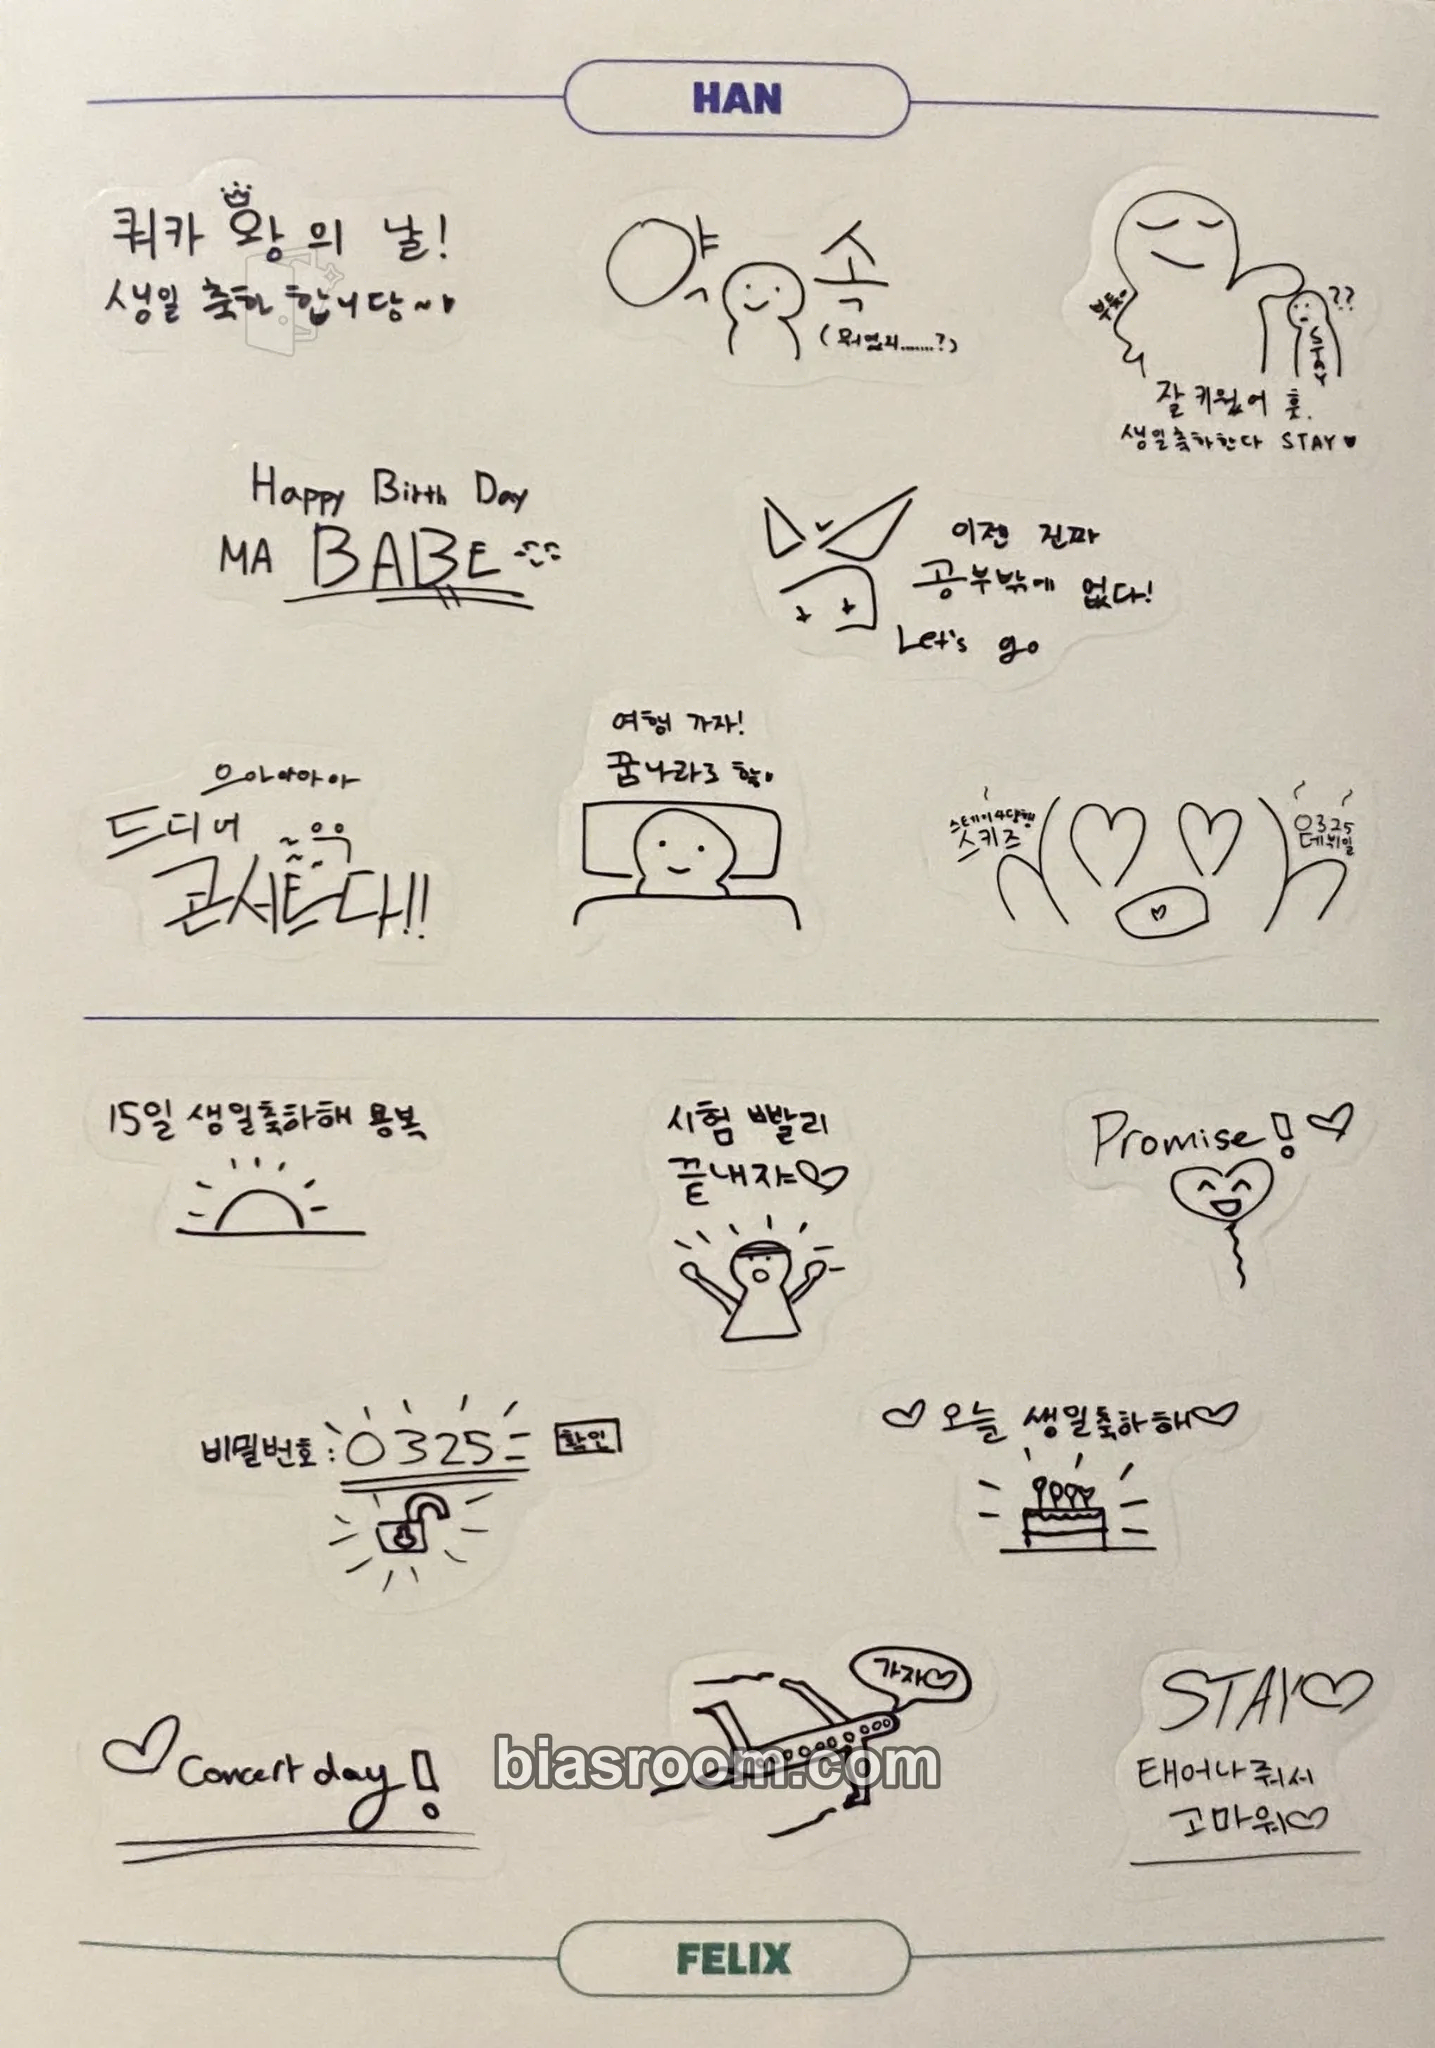 HAN
쿼카 왕의 날!
생일 축하 합니당~
약속
(뭐였지.......?)
부둥
??
STAY
잘 키웠어 훗.
생일축하한다 STAY
Happy Birth Day
MA BABE
이젠 진짜
공부밖에 없다!
Let's go
으아아아아
드디어
콘서트다!!
여행 가자!
꿈나라로
스키즈
0325
데뷔일
15일 생일축하해 용복
시험 빨리
끝내쟈
Promise!
비밀번호: 0325
확인
오늘 생일축하해
Concert day!
가자
STAY
태어나줘서
고마워
biasroom.com
FELIX